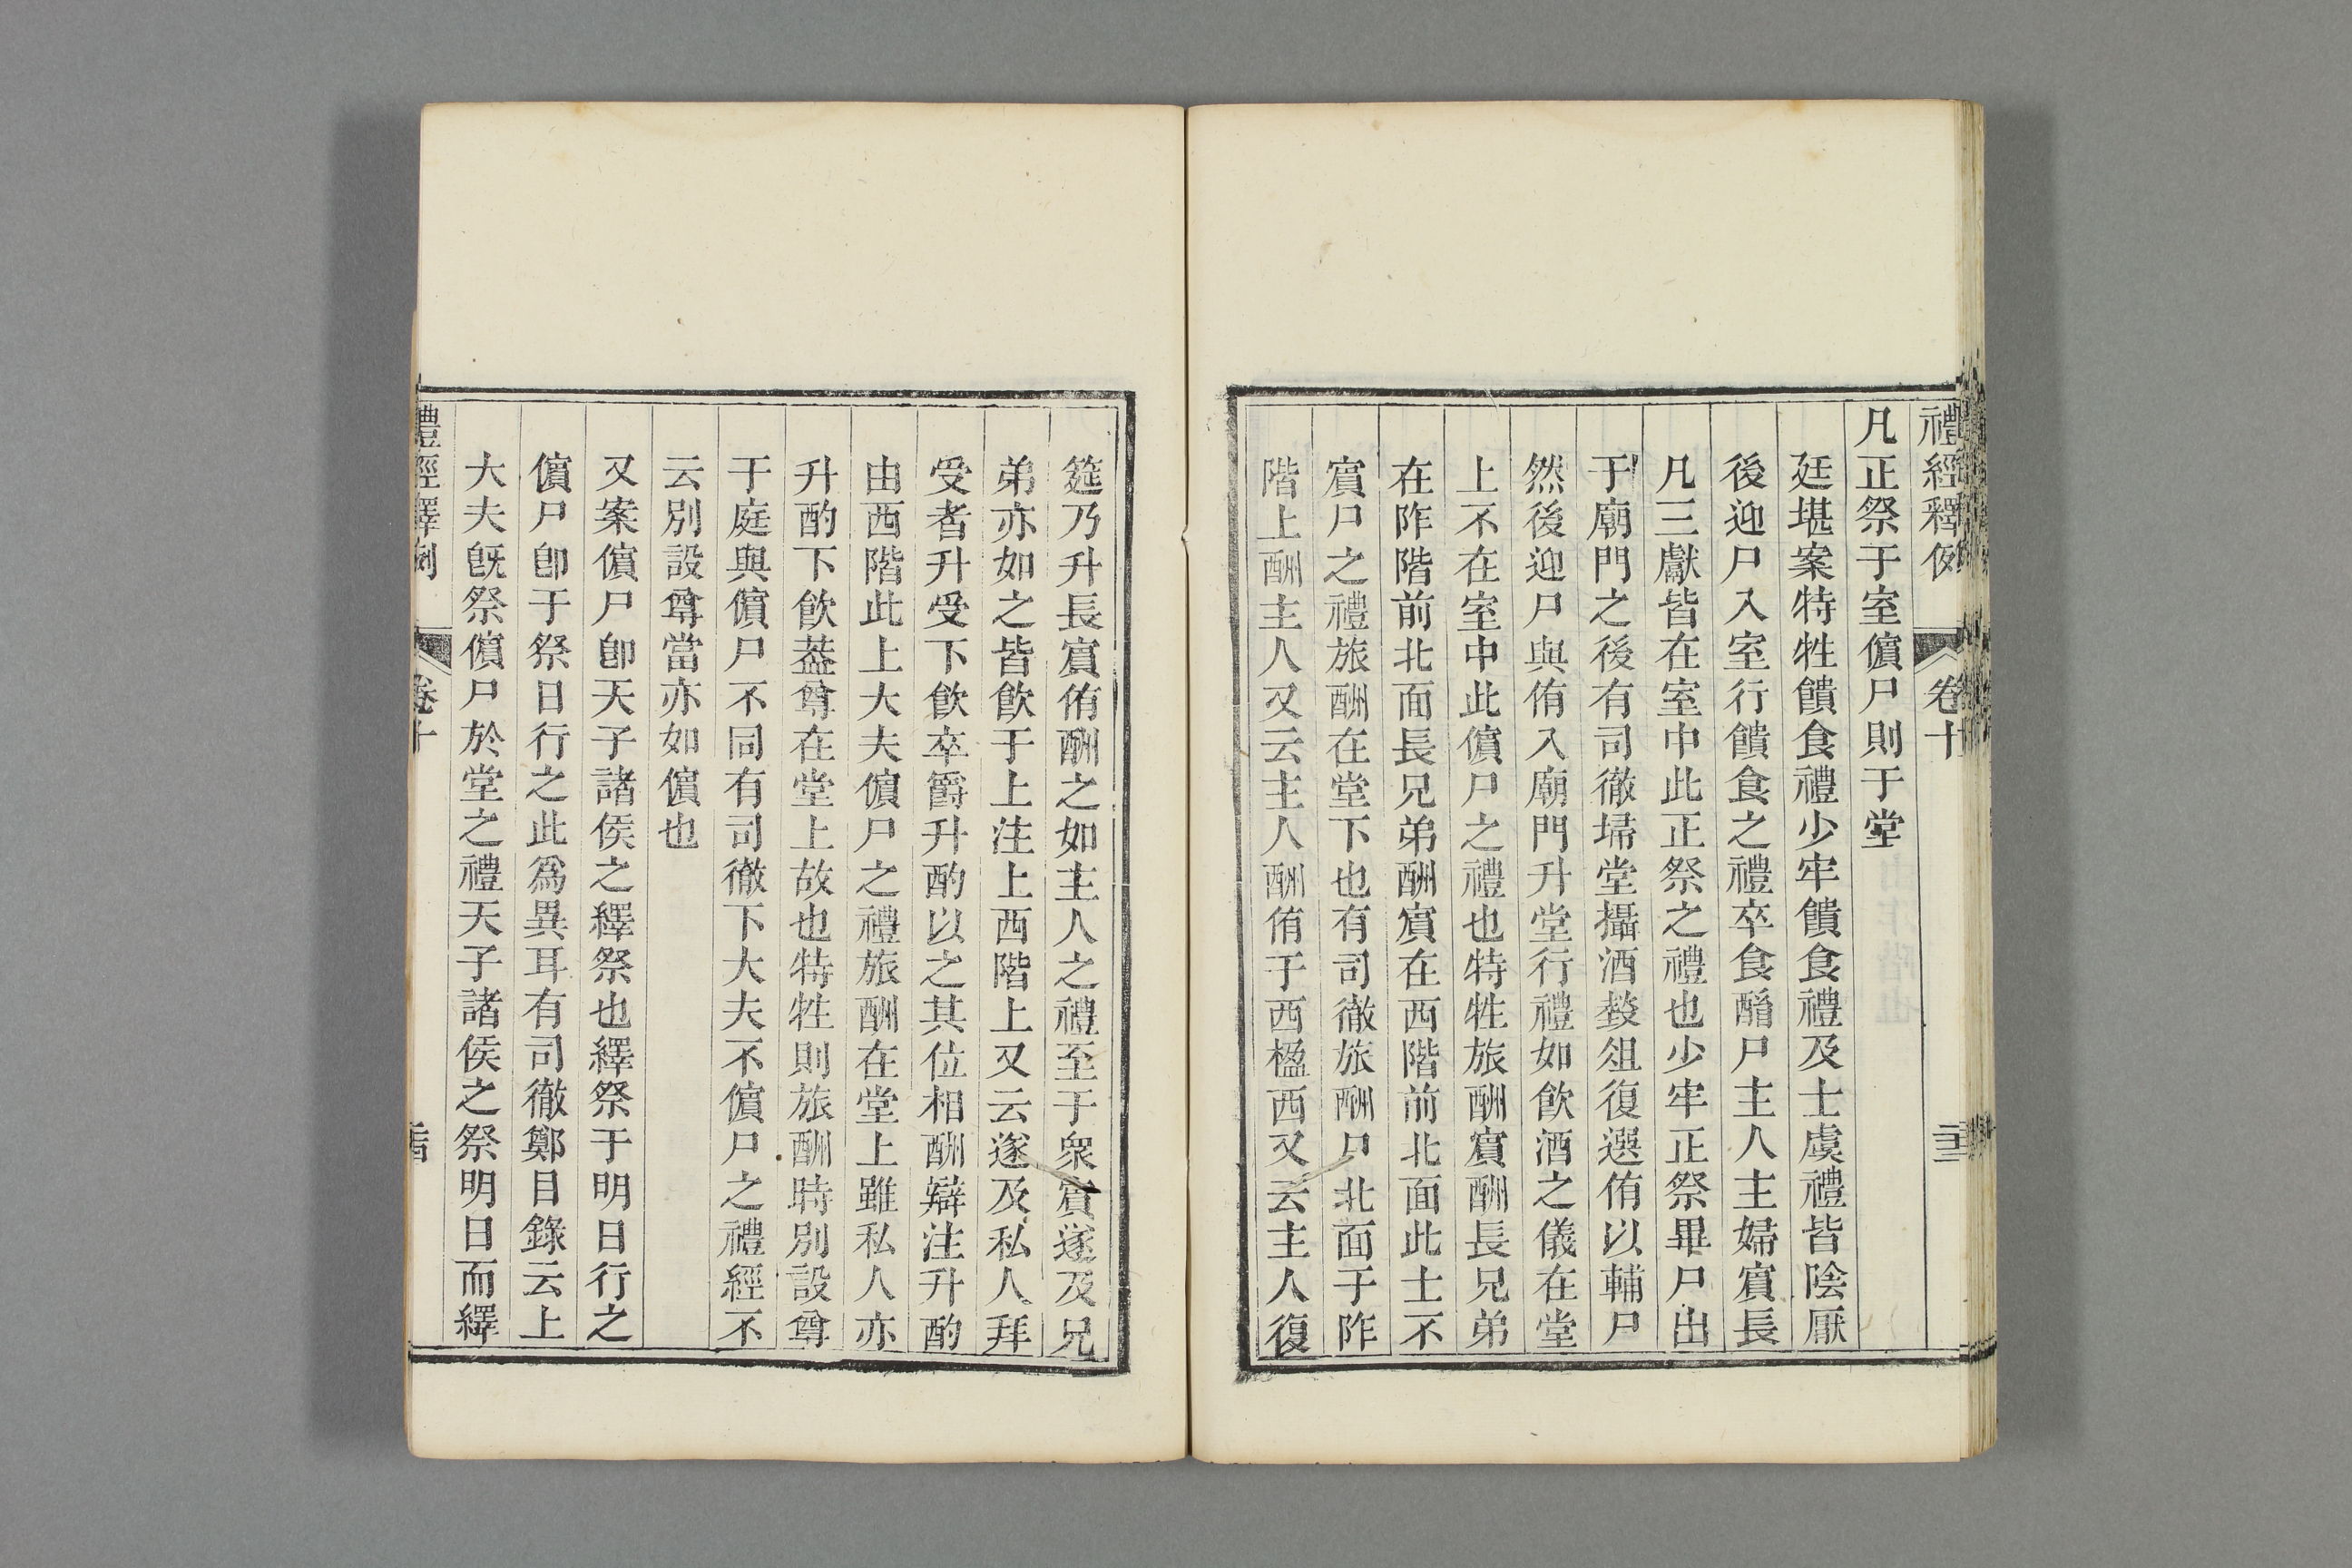 禮經釋例 卷十
凡正祭于室儐尸則于堂
廷堪案特牲饋食禮少牢饋食禮及士虞禮皆陰厭
後迎尸入室行饋食之禮卒食酳尸主人主婦賓長
凡三獻皆在室中此正祭之禮也少牢正祭畢尸出
于廟門之後有司徹埽堂攝酒燅俎復選侑以輔尸
然後迎尸與侑入廟門升堂行禮如飲酒之儀在堂
上不在室中此儐尸之禮也特牲旅酬賓酬長兄弟
在阼階前北面長兄弟酬賓在西階前北面此士不
賓尸之禮旅酬在堂下也有司徹旅酬尸北面于阼
階上酬主人又云主人酬侑于西楹西又云主人復
筵乃升長賓侑酬之如主人之禮至于眾賓遂及兄
弟亦如之皆飲于上注上西階上又云遂及私人拜
受者升受下飲卒爵升酌以之其位相酬辯注升酌
由西階此上大夫儐尸之禮旅酬在堂上雖私人亦
升酌下飲葢尊在堂上故也特牲則旅酬時別設尊
于庭與儐尸不同有司徹下大夫不儐尸之禮經不
云別設尊當亦如儐也
又案儐尸卽天子諸侯之繹祭也繹祭于明日行之
儐尸卽于祭日行之此為異耳有司徹鄭目錄云上
大夫旣祭儐尸於堂之禮天子諸侯之祭明日而繹
禮經釋例 卷十